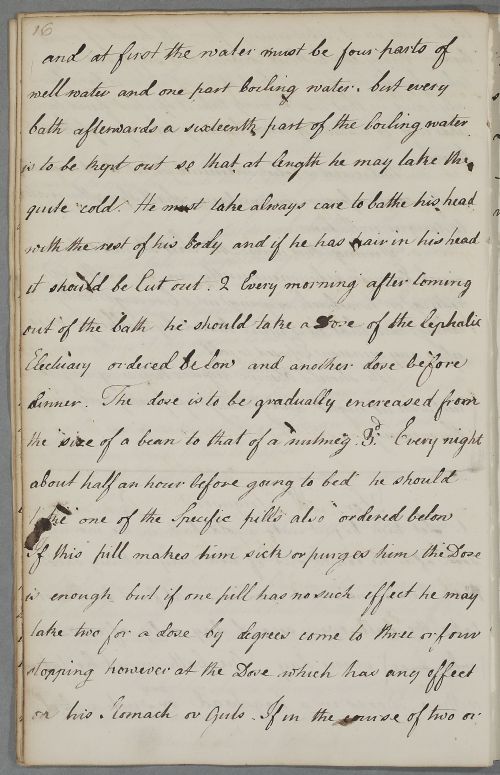 16
and at first the water must be four parts of
well water and one part boiling water. but every
bath afterwards a sixteenth part of the boiling water
is to be kept out so that at length he may take the
quite cold. He must take always care to bathe his head
with the rest of his body and if he has hair in his head
it should be Cut out. 2 Every morning after coming
out of the bath he should take a Dose of the Cephalic
Electuary ordered below and another dose before
dinner. The dose is to be gradually encreased from
the size of a bean to that of a nutmeg. 3d. Every night
about half an hour before going to bed he should
take one of the Specific pills also ordered below
If this pill makes him sick or purges him the Dose
is enough but if one pill has no such effect he may
take two for a dose by degrees come to three or four
stopping however at the Dose which has any effect
on his Stomach or Guts. If in the course of two or